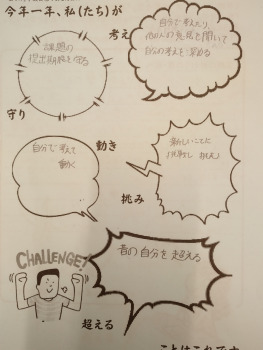 今年一年、私(たち)が
考え
自分で考えたり
他の人の意見を聞いて
自分の考えを深める
課題の
提出期限を守る
守り
動き
自分で考えて
動く
新しいことに
挑み
CHALLENGE!
昔の自分を超える
超える
ことはこれです